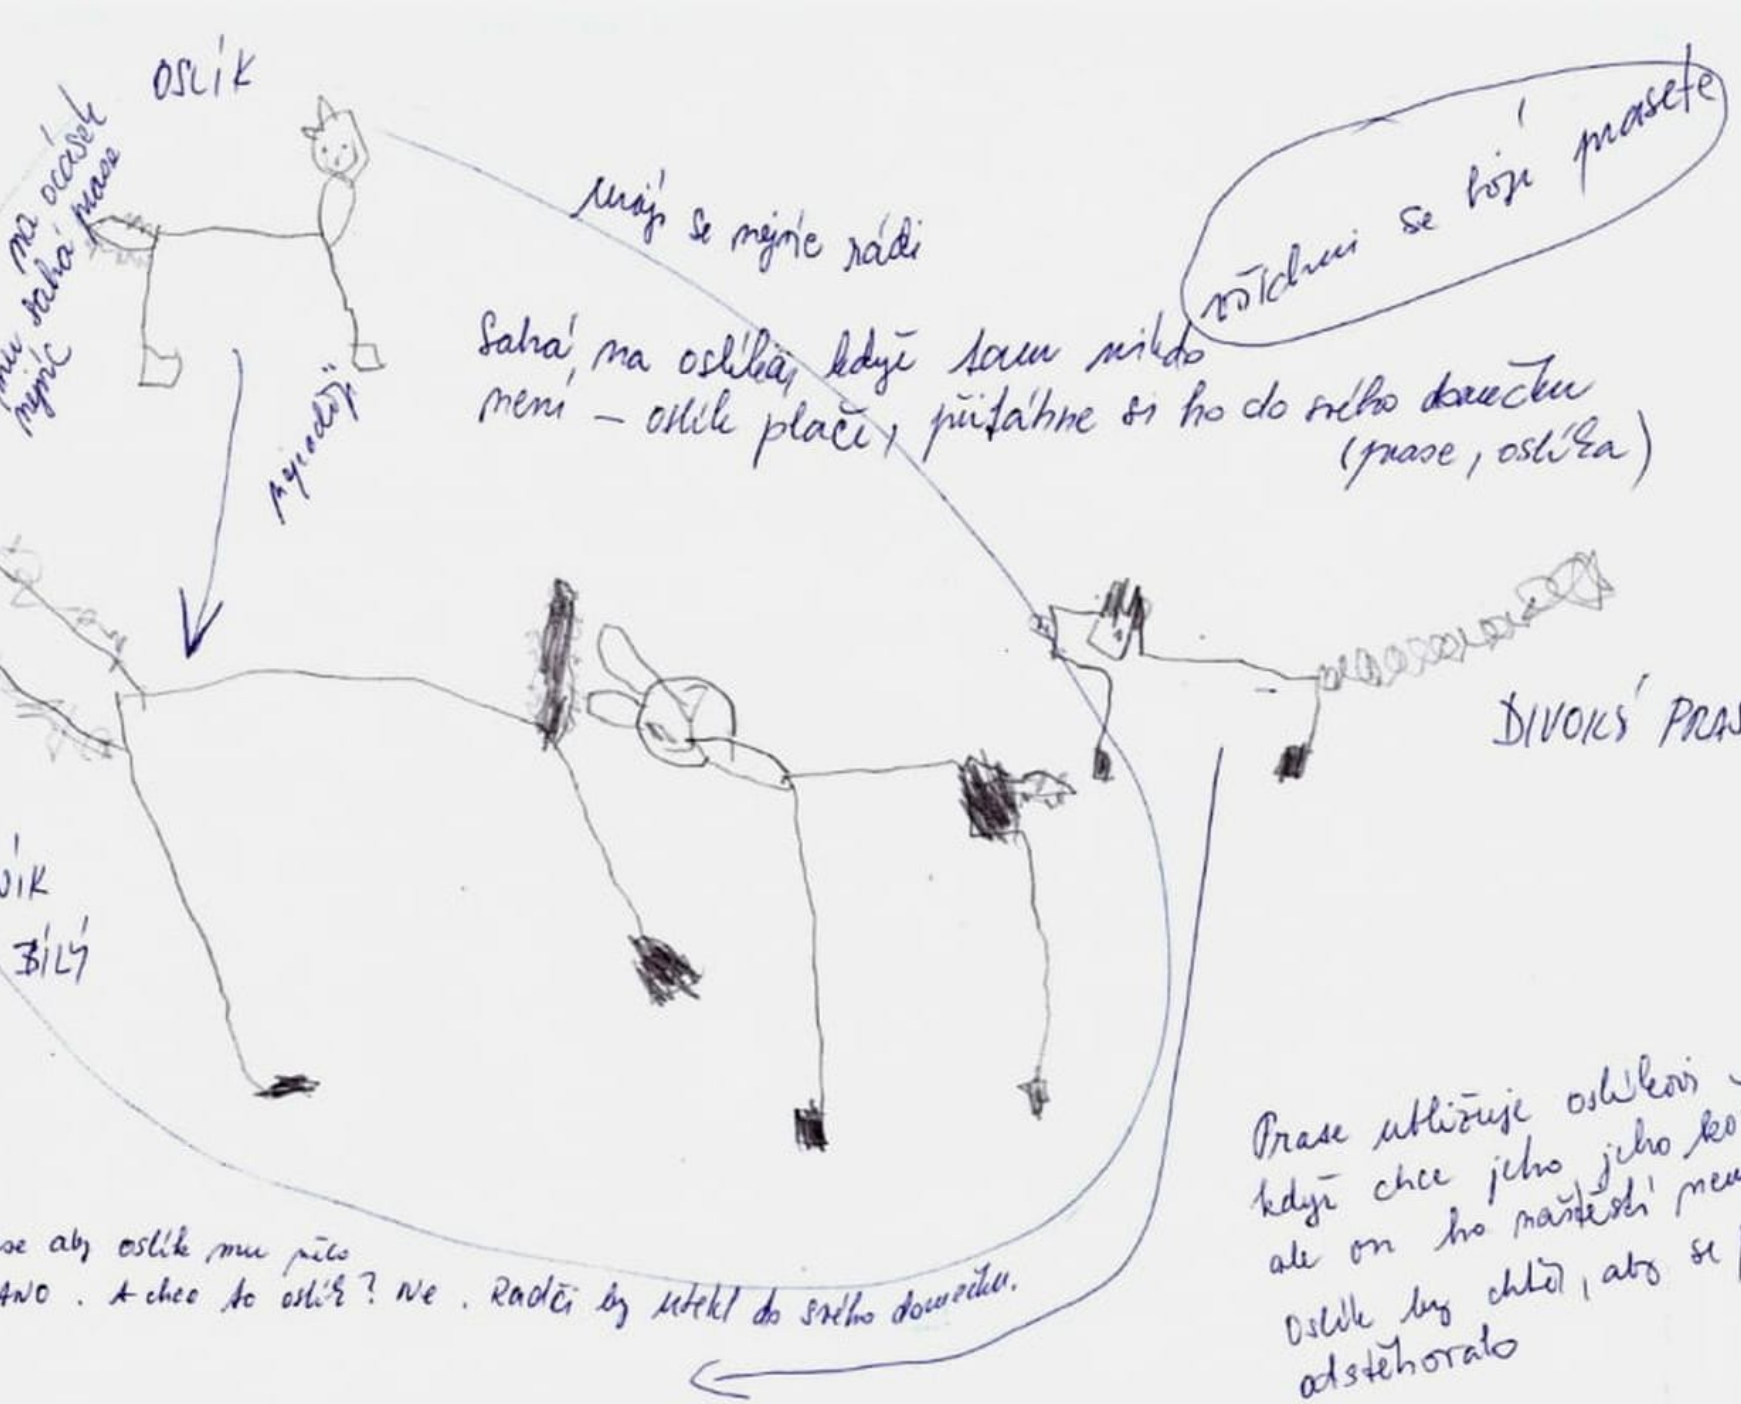 OSLÍK
na ocásek
sahá prase
nejvíc
nejraději
mají se nejvíc rádi
všichni se bojí prasete
Sahá na oslíka, když tam nikdo
není – oslík pláče, přitáhne si ho do svého domečku
(prase, oslíka)
DIVOKÉ PRAS
BÍLÝ
se aby oslík mu
ANO. A chce to oslík? Ne. Radči by utekl do svého domečku.
Prase ubližuje oslíkovi
když chce jeho, jeho
ale on ho naštěstí
Oslík by chtěl, aby se
odstěhovalo